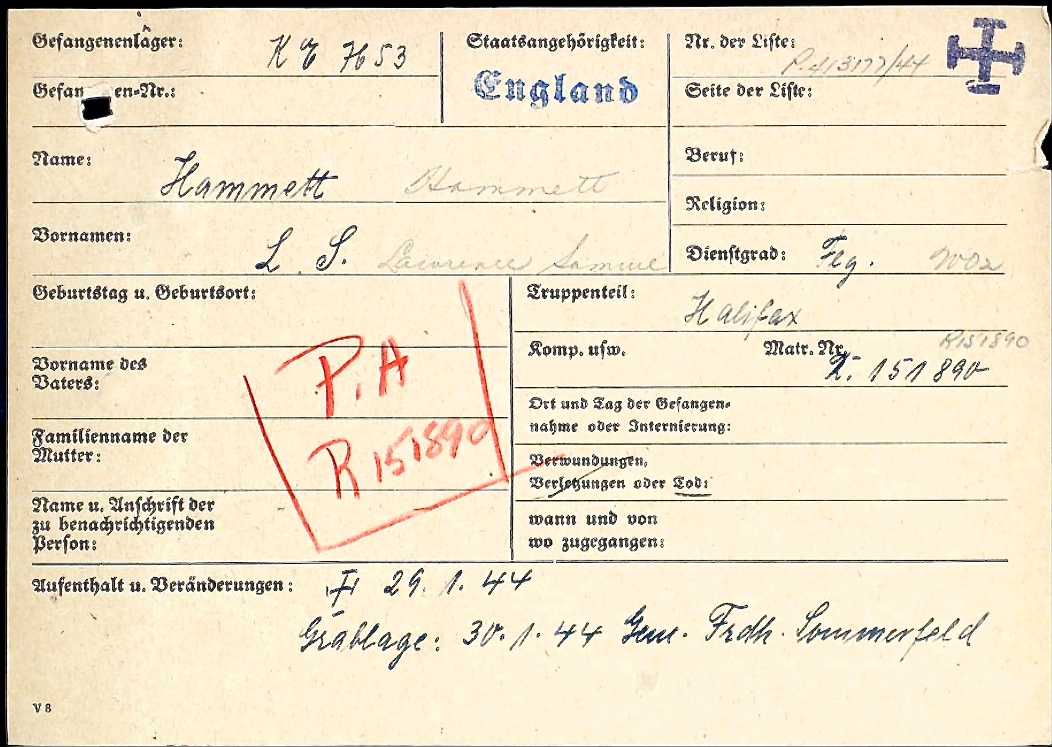 Gefangenenläger: K E 7653
Staatsangehörigkeit:
England
Nr. der Liste:
Gefan en-Nr.:
Seite der Liste:
Name: Hammett Hammett
Beruf:
Religion:
Vornamen: L. S. Lawrence Samuel
Dienstgrad: Flg. WO2
Geburtstag u. Geburtsort:
Truppenteil: Halifax
Komp. usw. Matr. Nr. R151890
R. 151890
Vorname des
Vaters:
P.A
R151890
Ort und Tag der Gefangen-
nahme oder Internierung:
Familienname der
Mutter:
Verwundungen,
Verletzungen oder Tod:
Name u. Anschrift der
zu benachrichtigenden
Person:
wann und von
wo zugegangen:
Aufenthalt u. Veränderungen: 29. 1. 44
Grablage: 30. 1. 44 Gem. Frdh. Sommerfeld
V 8